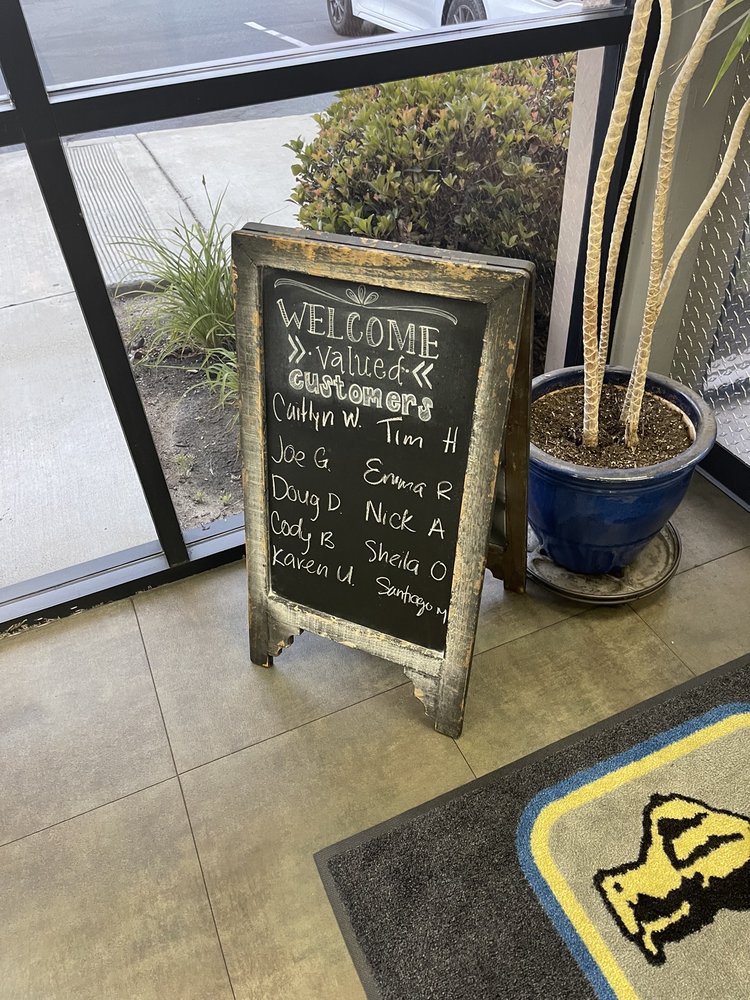 WELCOME
valued
customers
Caitlyn W. Tim H
Joe G. Emma R
Doug D. Nick A
Cody B Sheila O
Karen U. Santiago M